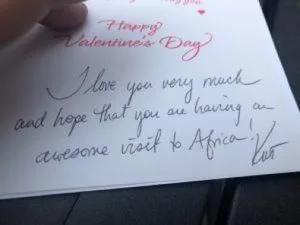 you
Happy
Valentine's Day
I love you very much
and hope that you are having an
awesome visit to Africa!
Kat